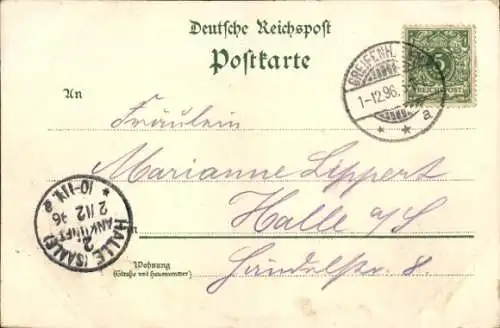 Deutsche Reichspost
Postkarte
An
Fräulein
Marianne Lippert
Halle a/S
in
Wohnung
(Straße und Hausnummer)
Händelstr. 8.
GREIFENH
1-12.96.
a
5
REICHSPOST
HALLE (SAALE)
ANKUNFT
2
2/12 96
10-11 N